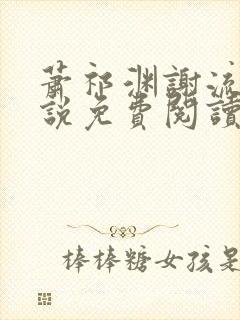 蕭祁渊謝流
說免費閱讀
棒棒糖女孩是